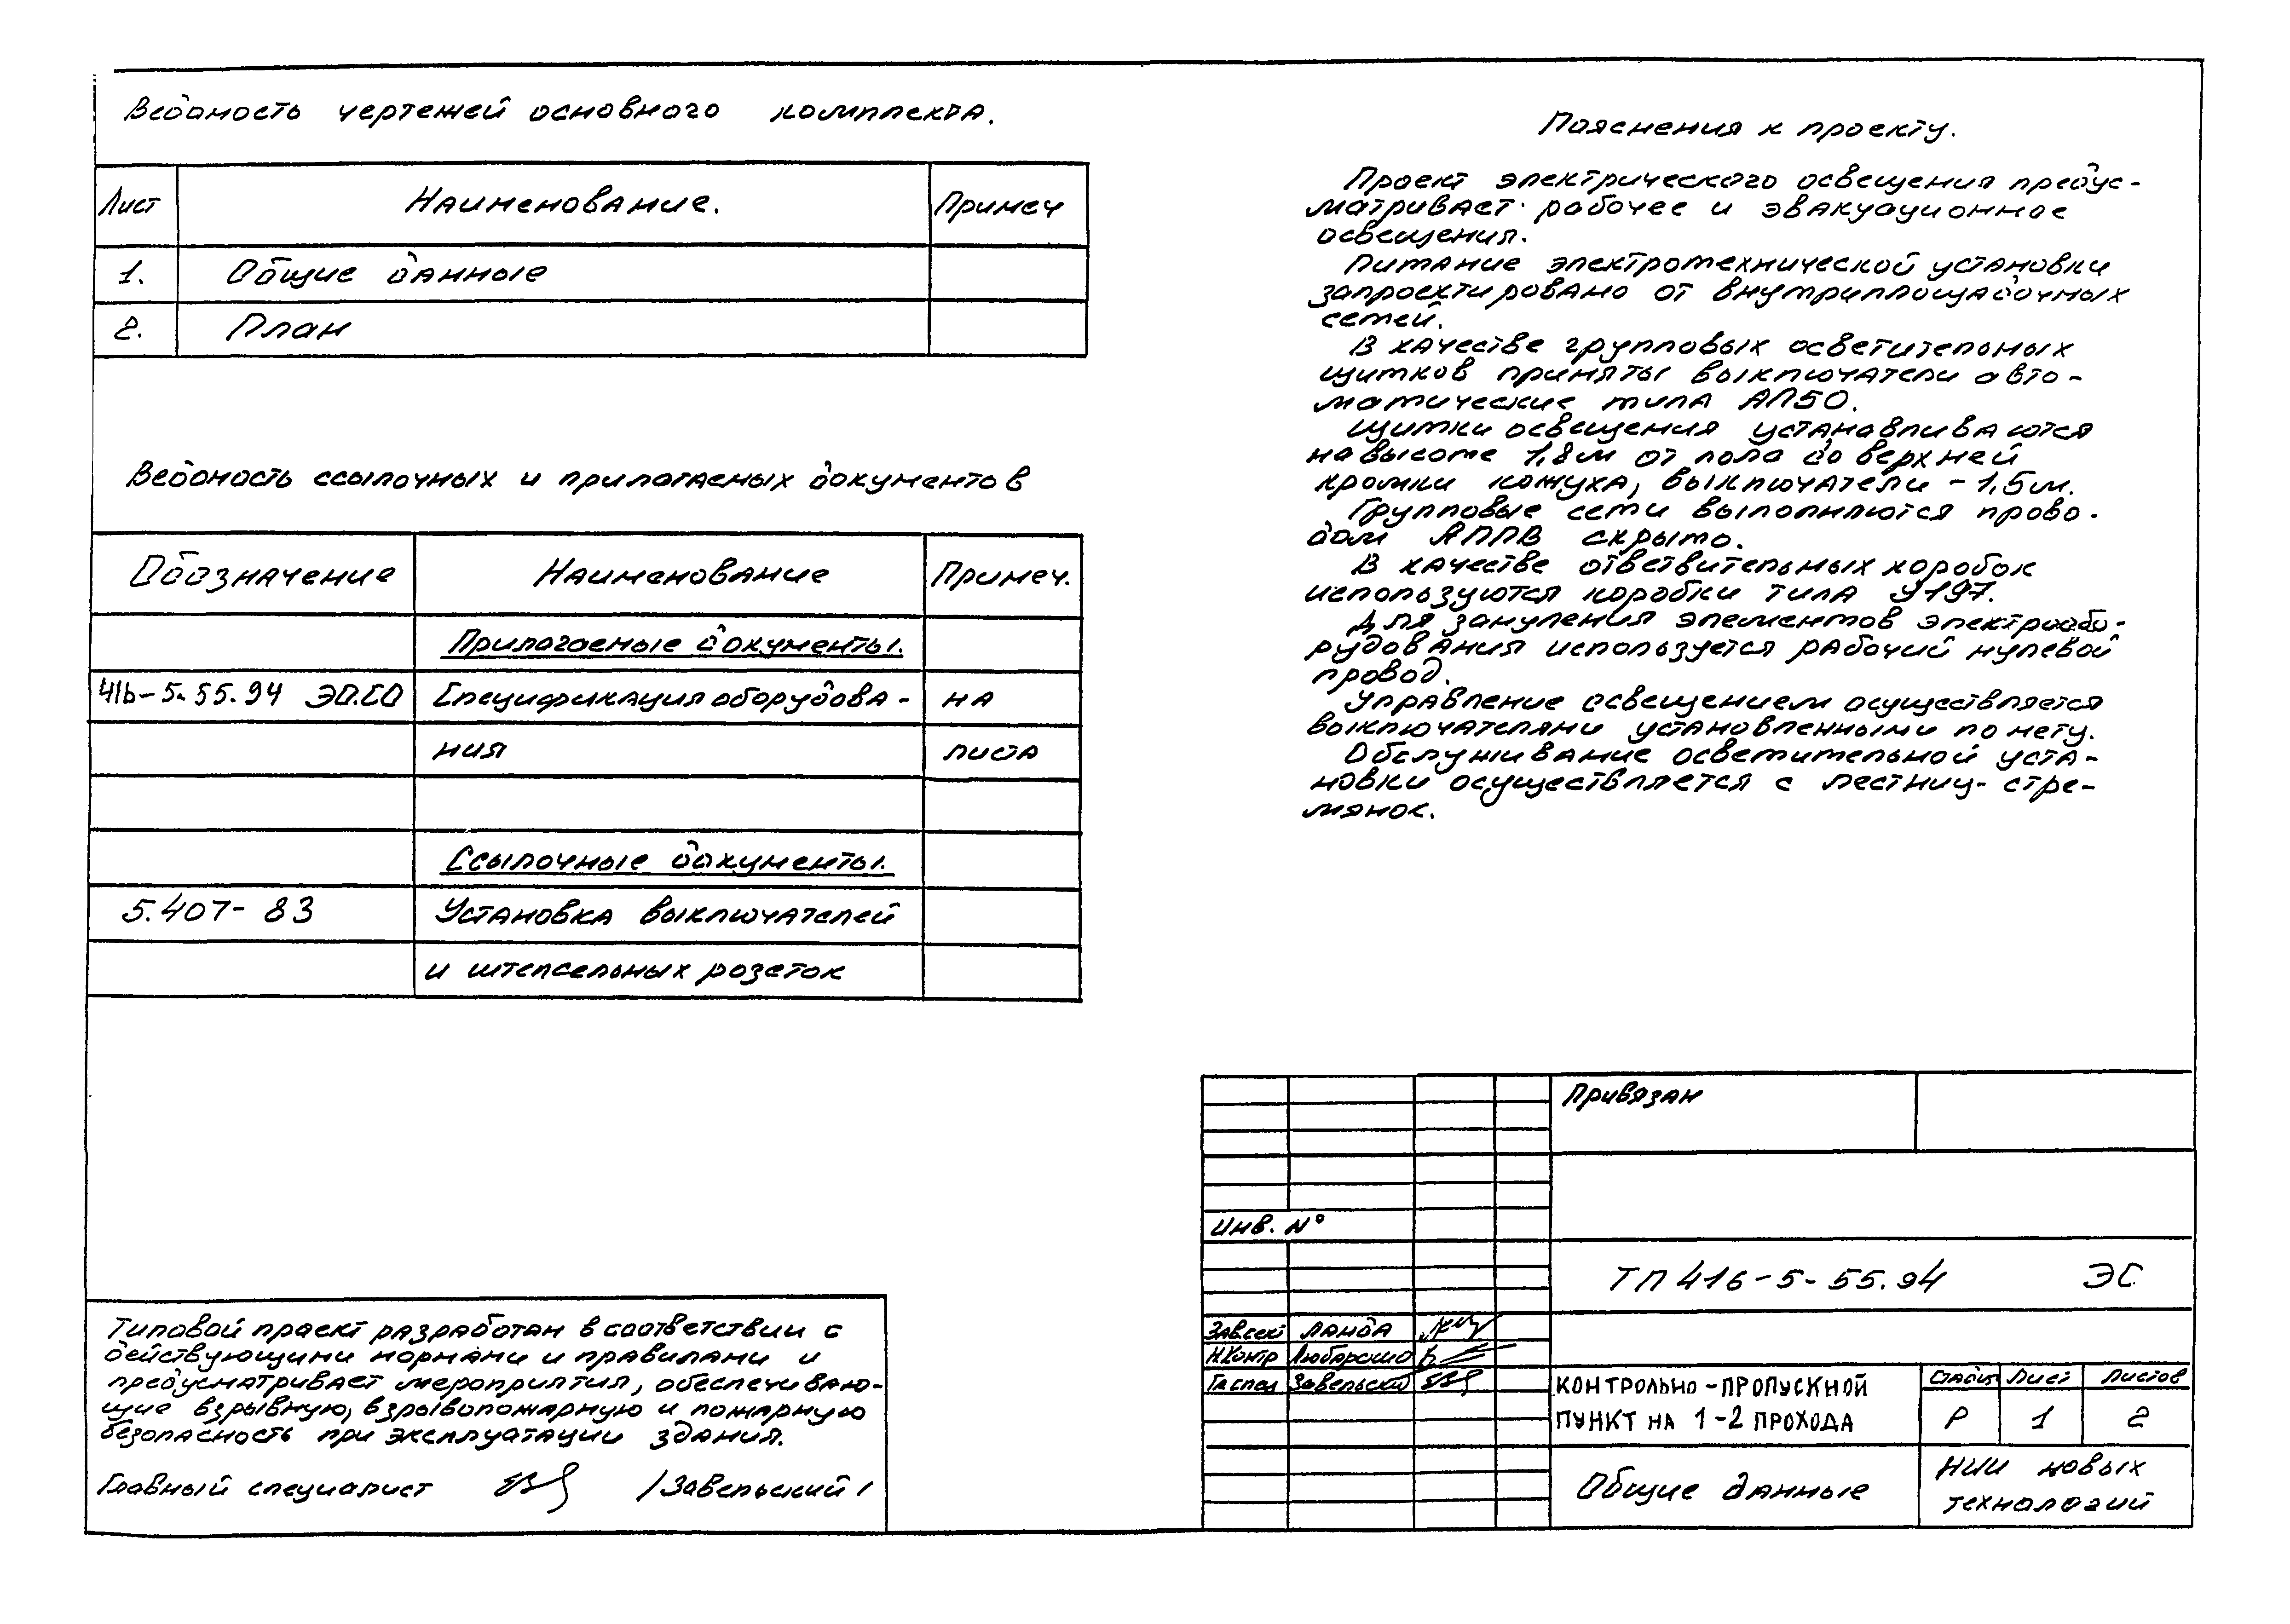 Ведомость чертежей основного комплекта.
Лист Наименование. Примеч
1. Общие данные
2. План
Ведомость ссылочных и прилагаемых документов
Обозначение Наименование Примеч.
Прилагаемые документы.
416-5-55.94 ЭО.СО Спецификация оборудова- на
ния листа
Ссылочные документы.
5.407-83 Установка выключателей
и штепсельных розеток
Типовой проект разработан в соответствии с
действующими нормами и правилами и
предусматривает мероприятия, обеспечиваю-
щие взрывную, взрывопожарную и пожарную
безопасность при эксплуатации здания.
Главный специалист /Завельский/
Пояснения к проекту.
Проект электрического освещения предус-
матривает рабочее и эвакуационное
освещения.
Питание электротехнической установки
запроектировано от внутриплощадочных
сетей.
В качестве групповых осветительных
щитков приняты выключатели авто-
матические типа АП50.
Щитки освещения устанавливаются
на высоте 1,8м от пола до верхней
кромки кожуха, выключатели - 1,5м.
Групповые сети выполняются прово-
дом АППВ скрыто.
В качестве ответвительных коробок
используются коробки типа У197.
Для зануления элементов электрообо-
рудования используется рабочий нулевой
провод.
Управление освещением осуществляется
выключателями установленными по месту.
Обслуживание осветительной уста-
новки осуществляется с лестниц-стре-
мянок.
Привязан
Инв. №
ТП 416-5-55.94 ЭС
Зав.сект Ланда
Н.Контр Любарский
Гл.спец Завельский
КОНТРОЛЬНО-ПРОПУСКНОЙ
ПУНКТ НА 1-2 ПРОХОДА
Стадия Лист Листов
Р 1 2
Общие данные
НИИ новых
технологий